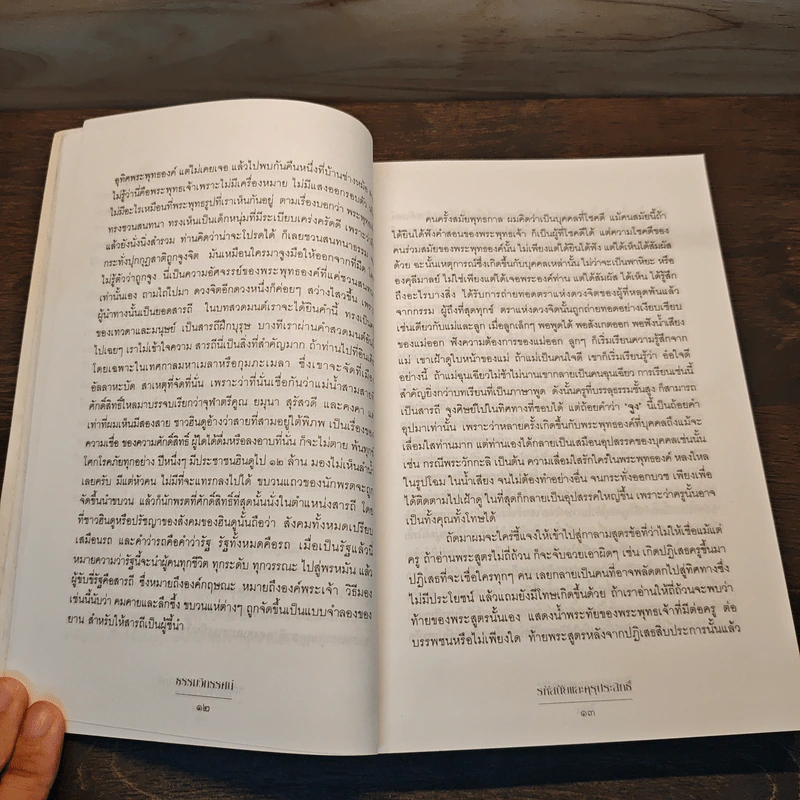 อุทิศพระพุทธองค์ แต่ไม่เคยเจอ แล้วไปพบกันคืนหนึ่งที่บ้านช่างหม้อ
ไม่รู้ว่านี่คือพระพุทธเจ้าเพราะไม่มีเครื่องหมาย ไม่มีแสงออกรอบตัว
ไม่มีอะไรเหมือนที่พระพุทธรูปที่เราเห็นกันอยู่ ตามเรื่องบอกว่า
ทรงชวนสนทนา ทรงเห็นเป็นเด็กหนุ่มที่มีระเบียบเคร่งครัดดี
แล้วยังนั่งนิ่งสำรวม ท่านคิดว่าน่าจะโปรดได้ ก็เลยชวนสนทนาธรรม
กระทั่งปุกกุสาติถูกจูงจิต มันเหมือนใครมาจูงมือให้ออกจากที่มืด
ไม่รู้ตัวว่าถูกจูง นี่เป็นความอัศจรรย์ของพระพุทธองค์ที่แค่ชวนสนทนา
เท่านั้นเอง ถามไถ่ไปมา ดวงจิตอีกดวงหนึ่งก็ค่อยๆ สว่างไสวขึ้น
ผู้นำทางนั้นเป็นยอดสารถี ในบทสวดมนต์เราจะได้ยินคำนี้ ทรงเป็น
ของเทวดาและมนุษย์ เป็นสารถีฝึกบุรุษ บางทีเราผ่านคำสวดมนต์
ไปเฉยๆ เราไม่เข้าใจความ สารถีนี่เป็นสิ่งที่สำคัญมาก ถ้าท่านไปที่อินเดีย
โดยเฉพาะในเทศกาลมหาเมลาหรือกุมภะเมลา ซึ่งเขาจะจัดที่เมือง
อัลลาหะบัด สาเหตุที่จัดที่นั่น เพราะว่าที่นั่นเชื่อกันว่าแม่น้ำสามสาย
ศักดิ์สิทธิ์ไหลมาบรรจบเรียกว่าจุฬาตรีคูณ ยมุนา สุรัสวดี และคงคา
เท่าที่ผมเห็นมีสองสาย ชาวฮินดูอ้างว่าสายที่สามอยู่ใต้พิภพ เป็นเรื่องของ
ความเชื่อ ของความศักดิ์สิทธิ์ ผู้ใดได้ดื่มหรือลงอาบที่นั่น ก็จะไม่ตาย พ้นทุกข์
โศกโรคภัยทุกอย่าง ปีหนึ่งๆ มีประชาชนฮินดูไป ๑๒ ล้าน มองไม่เห็น
เลยครับ มีแต่หัวคน ไม่มีที่จะแทรกลงไปได้ ขบวนแถวของนักพรตจะถูก
จัดขึ้นนำขบวน แล้วก็นักพรตที่ศักดิ์สิทธิ์ที่สุดนั้นนั่งในตำแหน่งสารถี โดย
ที่ชาวฮินดูหรือปรัชญาของสังคมของฮินดูนั้นถือว่า สังคมทั้งหมดเปรียบ
เสมือนรถ และคำว่ารถคือคำว่ารัฐ รัฐทั้งหมดคือรถ เมื่อเป็นรัฐแล้วมี
หมายความว่ารัฐนี้จะนำผู้คนทุกชีวิต ทุกระดับ ทุกวรรณะ ไปสู่พรหมัน แล้ว
ผู้ขับขี่รัฐคือสารถี ซึ่งหมายถึงองค์กฤษณะ หมายถึงองค์พระเจ้า วิธีมอง
เช่นนี้นับว่า คมคายและลึกซึ้ง ขบวนแห่ต่างๆ ถูกจัดขึ้นเป็นแบบจำลองของ
ยาน สำหรับให้สารถีเป็นผู้ชี้นำ
ธรรมวิทรรศน์
๑๒
คนครั้งสมัยพุทธกาล ผมคิดว่าเป็นบุคคลที่โชคดี แม้คนสมัยนี้ถ้า
ได้ยินได้ฟังคำสอนของพระพุทธเจ้า ก็เป็นผู้ที่โชคดีได้ แต่ความโชคดีของ
คนร่วมสมัยของพระพุทธองค์นั้น ไม่เพียงแต่ได้ยินได้ฟัง แต่ได้เห็นได้สัมผัส
ด้วย ฉะนั้นเหตุการณ์ซึ่งเกิดขึ้นกับบุคคลเหล่านั้น ไม่ว่าจะเป็นพาหิยะ หรือ
องคุลีมาลย์ ไม่ใช่เพียงแต่ได้เจอพระองค์ท่าน แต่ได้สัมผัส ได้เห็น ได้รู้สึก
ถึงอะไรบางสิ่ง ได้รับการถ่ายทอดตราแห่งดวงจิตของผู้ที่หลุดพ้นแล้ว
จากกรรม ผู้ถึงที่สุดทุกข์ ตราแห่งดวงจิตนั้นถูกถ่ายทอดอย่างเงียบเชียบ
เช่นเดียวกับแม่และลูก เมื่อลูกเล็กๆ พอพูดได้ พอสังเกตออก พอฟังน้ำเสียง
ของแม่ออก ฟังความต้องการของแม่ออก ลูกๆ ก็เริ่มเรียนความรู้สึกจาก
แม่ เขาเฝ้าดูใบหน้าของแม่ ถ้าแม่เป็นคนใจดี เขาก็เริ่มเรียนรู้ว่า อ๋อใจดี
อย่างนี้ ถ้าแม่ฉุนเฉียวไม่ช้าไม่นานเขากลายเป็นคนฉุนเฉียว การเรียนเช่นนี้
สำคัญยิ่งกว่าบทเรียนที่เป็นภาษาพูด ดังนั้นครูที่บรรลุธรรมชั้นสูง ก็สามารถ
เป็นสารถี จูงศิษย์ไปในทิศทางที่ชอบได้ แต่ถ้อยคำว่า "จูง" นี้เป็นถ้อยคำ
อุปมาเท่านั้น เพราะว่าหลายครั้งเกิดขึ้นกับพระพุทธองค์ที่บุคคลถึงแม้จะ
เลื่อมใสท่านมาก แต่ท่านเองได้กลายเป็นเสมือนอุปสรรคของบุคคลเช่นนั้น
เช่น กรณีพระวักกะลิ เป็นต้น ความเลื่อมใสรักใคร่ในพระพุทธองค์ หลงใหล
ในรูปโฉม ในน้ำเสียง จนไม่ต้องทำอย่างอื่น จนกระทั่งออกบวช เพียงเพื่อ
ได้ติดตามไปเฝ้าดู ในที่สุดก็กลายเป็นอุปสรรคใหญ่ขึ้น เพราะว่าครูนั้นอาจ
เป็นทั้งคุณทั้งโทษได้
ถัดมาผมจะใคร่ชี้แจงให้เข้าไปสู่กาลามสูตรข้อที่ว่าไม่ให้เชื่อแม้แต่
ครู ถ้าอ่านพระสูตรไม่ถี่ถ้วน ก็จะจับฉวยเอาผิดๆ เช่น เกิดปฏิเสธครูขึ้นมา
ปฏิเสธที่จะเชื่อใครทุกๆ คน เลยกลายเป็นคนที่อาจพลัดตกไปสู่ทิศทางซึ่ง
ไม่มีประโยชน์ แล้วแถมยังมีโทษเกิดขึ้นด้วย ถ้าเราอ่านให้ถี่ถ้วนจะพบว่า
ท้ายของพระสูตรนั้นเอง แสดงน้ำพระทัยของพระพุทธเจ้าที่มีต่อครู ต่อ
บรรพชนหรือไม่เพียงใด ท้ายพระสูตรหลังจากปฏิเสธสิบประการนั้นแล้ว
รหัสนัยและคุรุประสิทธิ์
๑๓